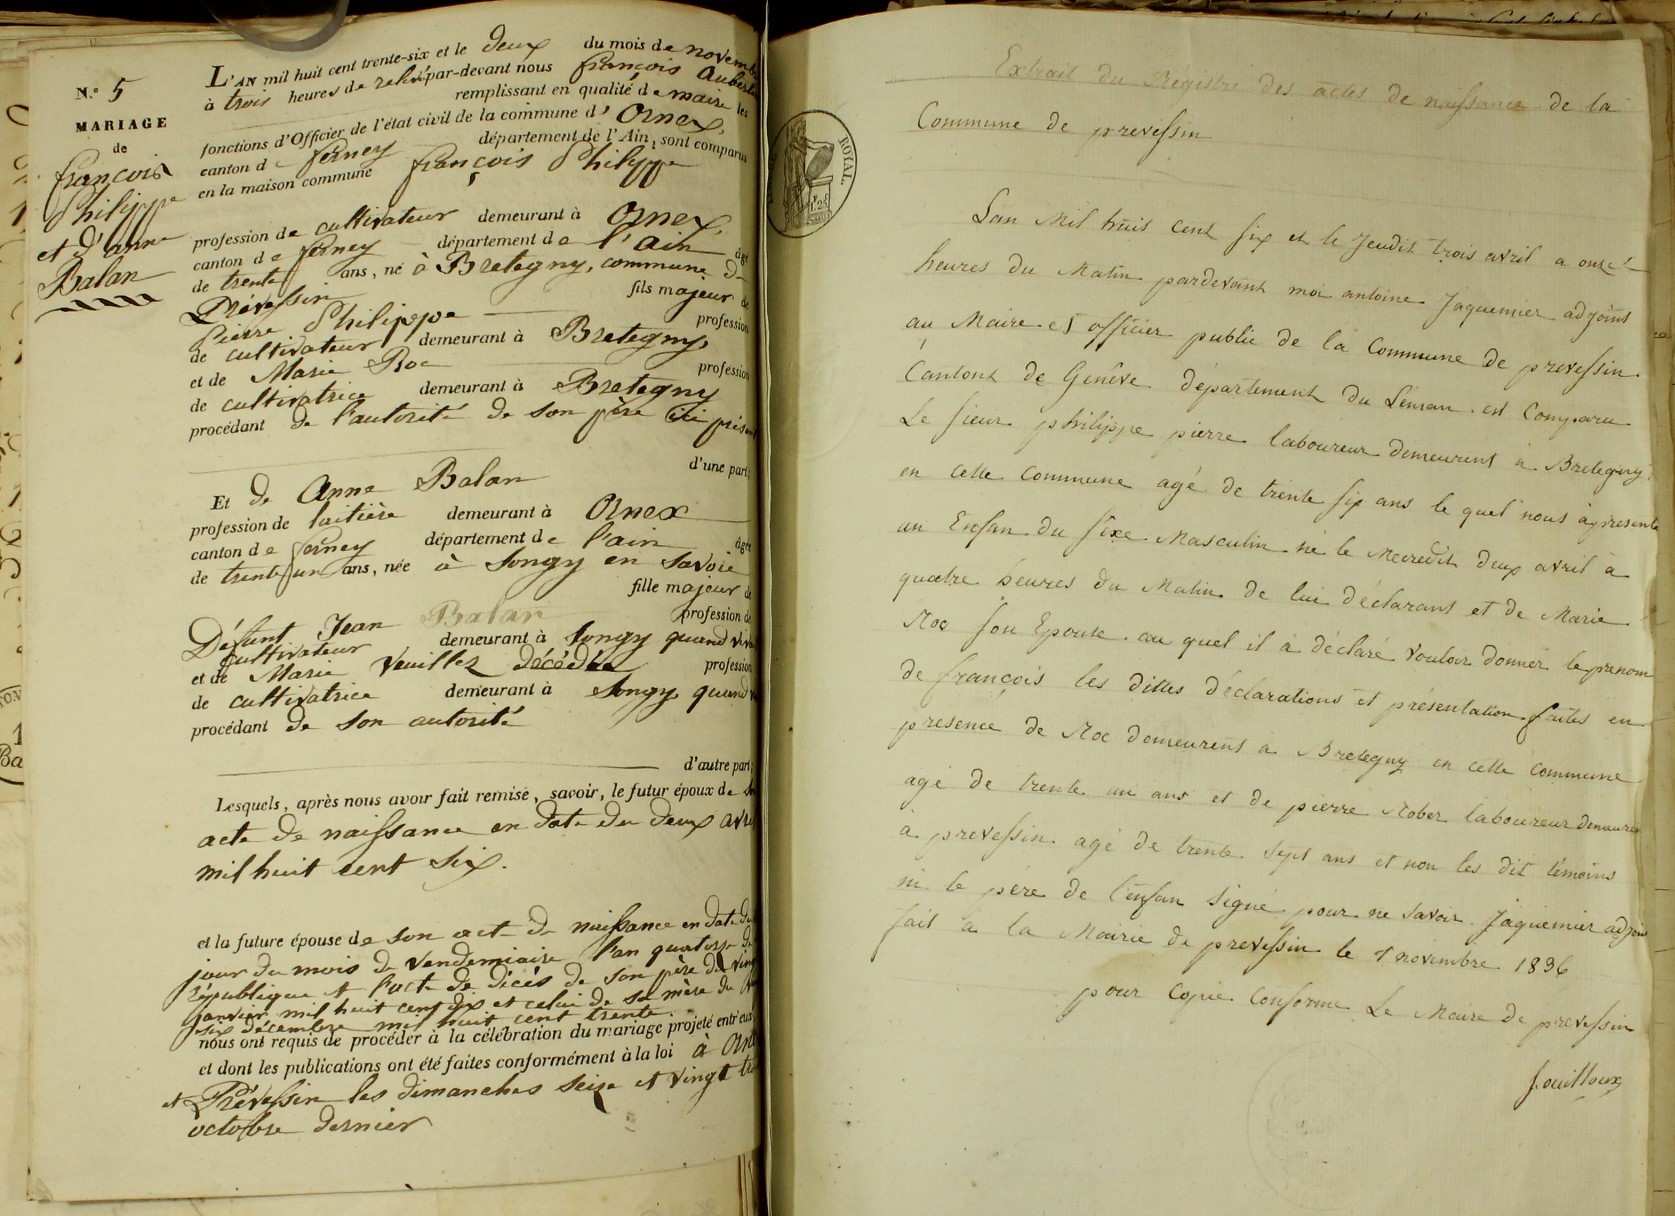 N.° 5
MARIAGE
de
françois
Philippe
et d'anne
Balan
L'AN mil huit cent trente-six et le deux du mois de novemb
à trois heures de relevé par-devant nous françois Aubert
remplissant en qualité de maire les
fonctions d'Officier de l'état civil de la commune d' Ornex,
canton de ferney département de l'Ain, sont comparus
en la maison commune françois Philippe
profession de cultivateur demeurant à Ornex,
canton de ferney département de l'ain âgé
de trente ans, né à Bretegny, commune de
Prévessin fils majeur de
Pierre Philippe profession
de cultivateur demeurant à Bretegny,
et de Marie Roc profession
de cultivatrice demeurant à Bretegny
procédant de l'autorité de son père ici présent
d'une part;
Et de Anne Balan
profession de laitière demeurant à Ornex
canton de ferney département de l'ain âgée
de trente un ans, née à Songy en Savoie
fille majeur de
Défunt Jean Balan profession de
cultivateur demeurant à Songy quand viv
et de Marie Veuillez décédés profession
de cultivatrice demeurant à Songy, quand
procédant de son autorité
d'autre part;
Lesquels, après nous avoir fait remise, savoir, le futur époux de son
acte de naissance en date du deux avril
mil huit cent six.
et la future épouse de son acte de naissance en date du
jour du mois de Vendemiaire l'an quatorze de
république et l'acte de décès de son père du vingt
janvier mil huit cent dix et celui de sa mère du
six décembre mil huit cent trente.
nous ont requis de procéder à la célébration du mariage projeté entr'eux
et dont les publications ont été faites conformément à la loi à Orn
et Prévessin les dimanches seize et vingt tr
octobre dernier
ROYAL
Extrait du Registre des actes de naissance de la
Commune de prevessin
L'an Mil huis cent six et le Jeudit trois avril a onze
heures du Matin pardevant moi antoine Jaquemier adjoins
au Maire et officier public de la Commune de prevessin
Cantont de Genêve département du Léman est Comparu
Le sieur philippe pierre laboureur demeurent à Bretegny
en cette Commune agé de trente six ans le quel nous à presenté
un Enfan du sexe Masculin né le Mecredit deux avril à
quatre heures du Matin de lui déclarant et de Marie
Roc son Epouse au quel il à déclaré vouloir donner le prenom
de françois les dittes déclarations et présentation faites en
presence de Roc demeurent a Bretegny en cette Commune
agé de trente un ans et de pierre Rober laboureur demeuren
à prevessin agé de trente sept ans et non les dit témoins
ni le père de l'enfan signé pour ne savoir. Jaquemier adjoin
fait à la Mairie de prevessin le 1 novembre 1836
pour Copie Conforme Le Maire de prevessin
fouilloux